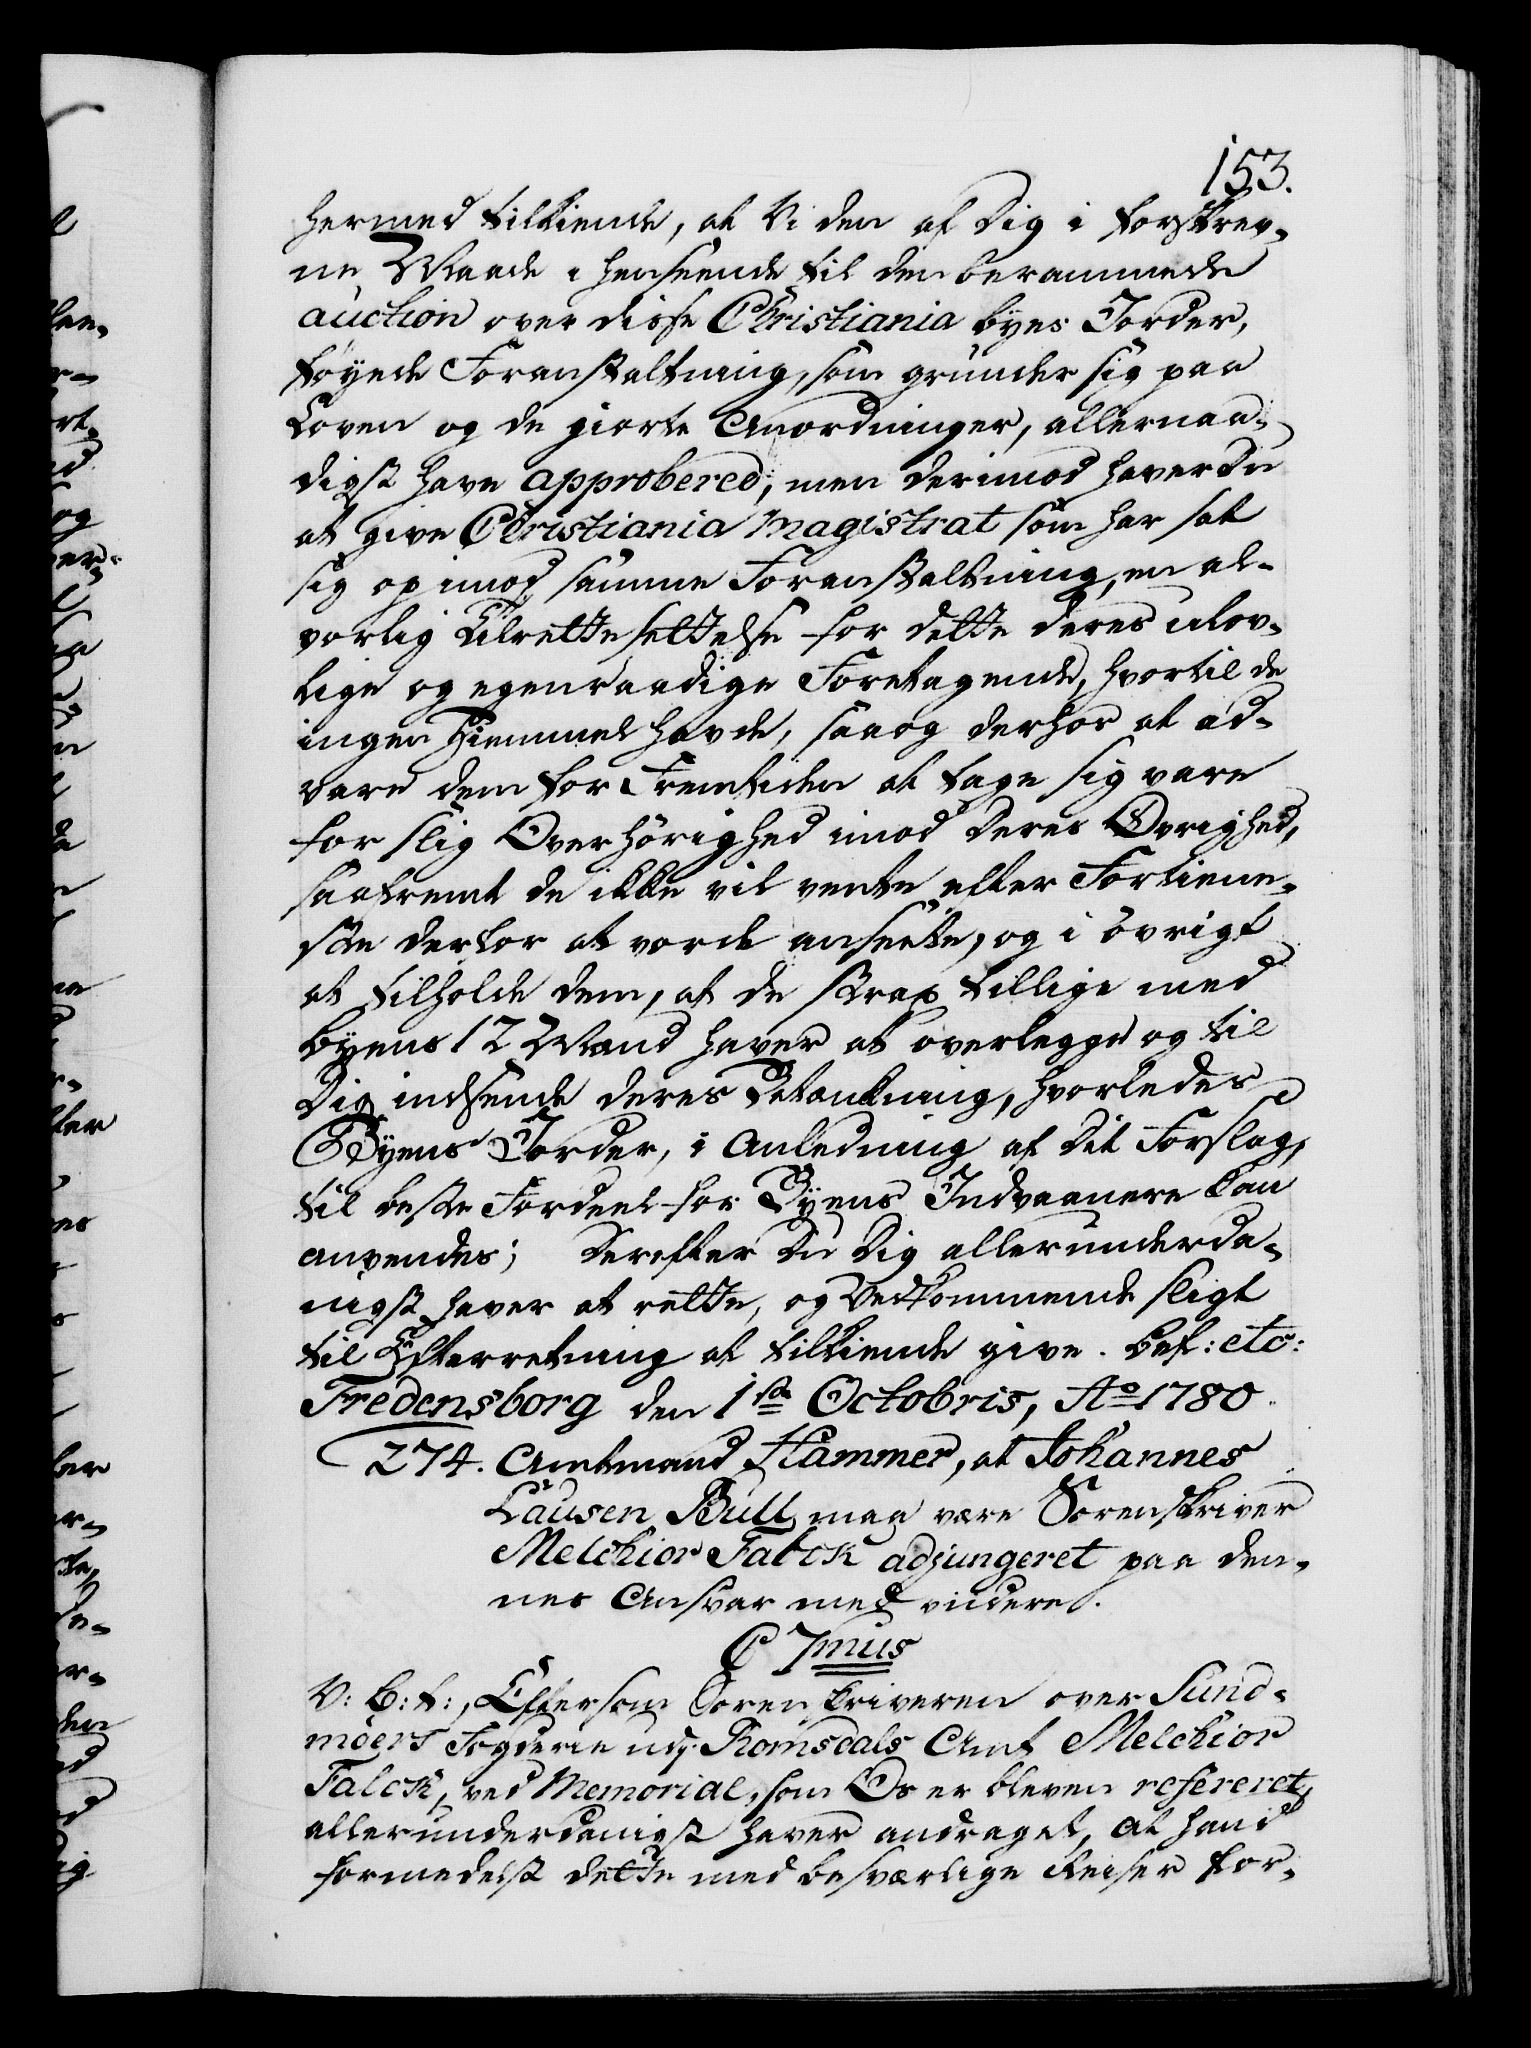 153.
hermed tilkiende, at Vi den af Dig i forskrev-
ne Maade i henseende til den berammede
auction over disse Christiania byes Jorder,
føyede Foranstaltning, som grunder sig paa
Loven og de giorte Anordninger, allernaa-
digst have approbered; men derimod haver Du
at give Christiania Magistrat som har sat
sig op imod samme Foranstaltning, en al-
vorlig Tilrettesettelse for dette deres ulov-
lige og egenraadige Foretagende, hvortil de
ingen Hiemmel havde, saa og derhos at ad-
vare dem for Fremtiden at tage sig vare
for slig Overhørighed imod deres Øvrighed,
saafremt de ikke vil vente efter Fortiene-
ste derfor at vorde anseete, og i øvrigt
at tilholde dem, at de strax tillige med
byens 12 Mænd haver at overlegge og til
Dig indsende deres Betænkning, hvorledes
Byens Jorder, i Anledning af Dit Forslag,
til beste Fordeel for Byens Indvaanere kan
anvendes; Derefter Du Dig allerunderda-
nigst haver at rette, og Vedkommende sligt
til Efterretning at tilkiende give. Bef: etc:
Fredensborg den 1ste Octobris, Ao 1780.
274. Amtmand Hammer, at Johannes
Lausen Bull maa være Sorenskriver
Melchior Falck adjungeret paa den-
nes Ansvar med videre.
C 7mus
V: G: t:, Eftersom Sorenskriveren over Sund-
møers Fogderie udj Romsdals Amt Melchior
Falck, ved Memorial, som Os er bleven refereret,
allerunderdanigst haver andraget, at hand
formedelst dette med besværlige Reiser for-